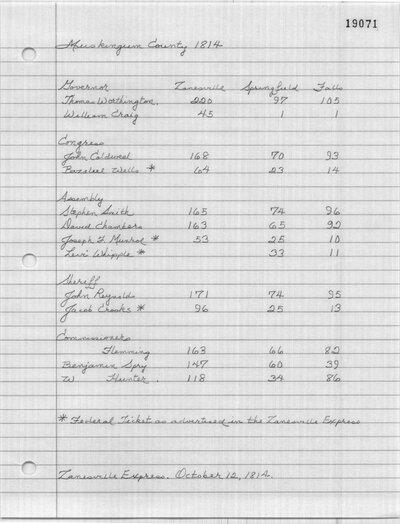 19071
Muskingum County 1814
Governor Zanesville Springfield Falls
Thomas Worthington. 220 97 105
William Craig 45 1 1
Congress
John Caldwell 168 70 93
Bazaleel Wells * 64 23 14
Assembly
Stephen Smith 165 74 96
David Chambers 163 65 92
Joseph F. Munroe * 53 25 10
Levi Whipple * 33 11
Sheriff
John Reynolds 171 74 95
Jacob Crooks * 96 25 13
Commissioners
Flemming 163 66 82
Benjamin Spry 147 60 39
W Hunter. 118 34 86
* Federal Ticket as advertised in the Zanesville Express
Zanesville Express. October 12, 1814.